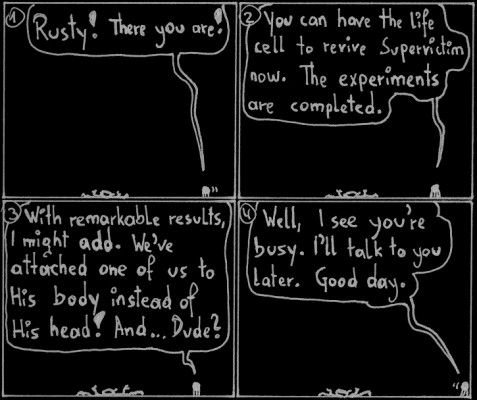 1
Rusty! There you are!
2
You can have the life
cell to revive Supervictim
now. The experiments
are completed.
3
With remarkable results,
I might add. We've
attached one of us to
His body instead of
His head! And... Dude?
4
Well, I see you're
busy. I'll talk to you
later. Good day.